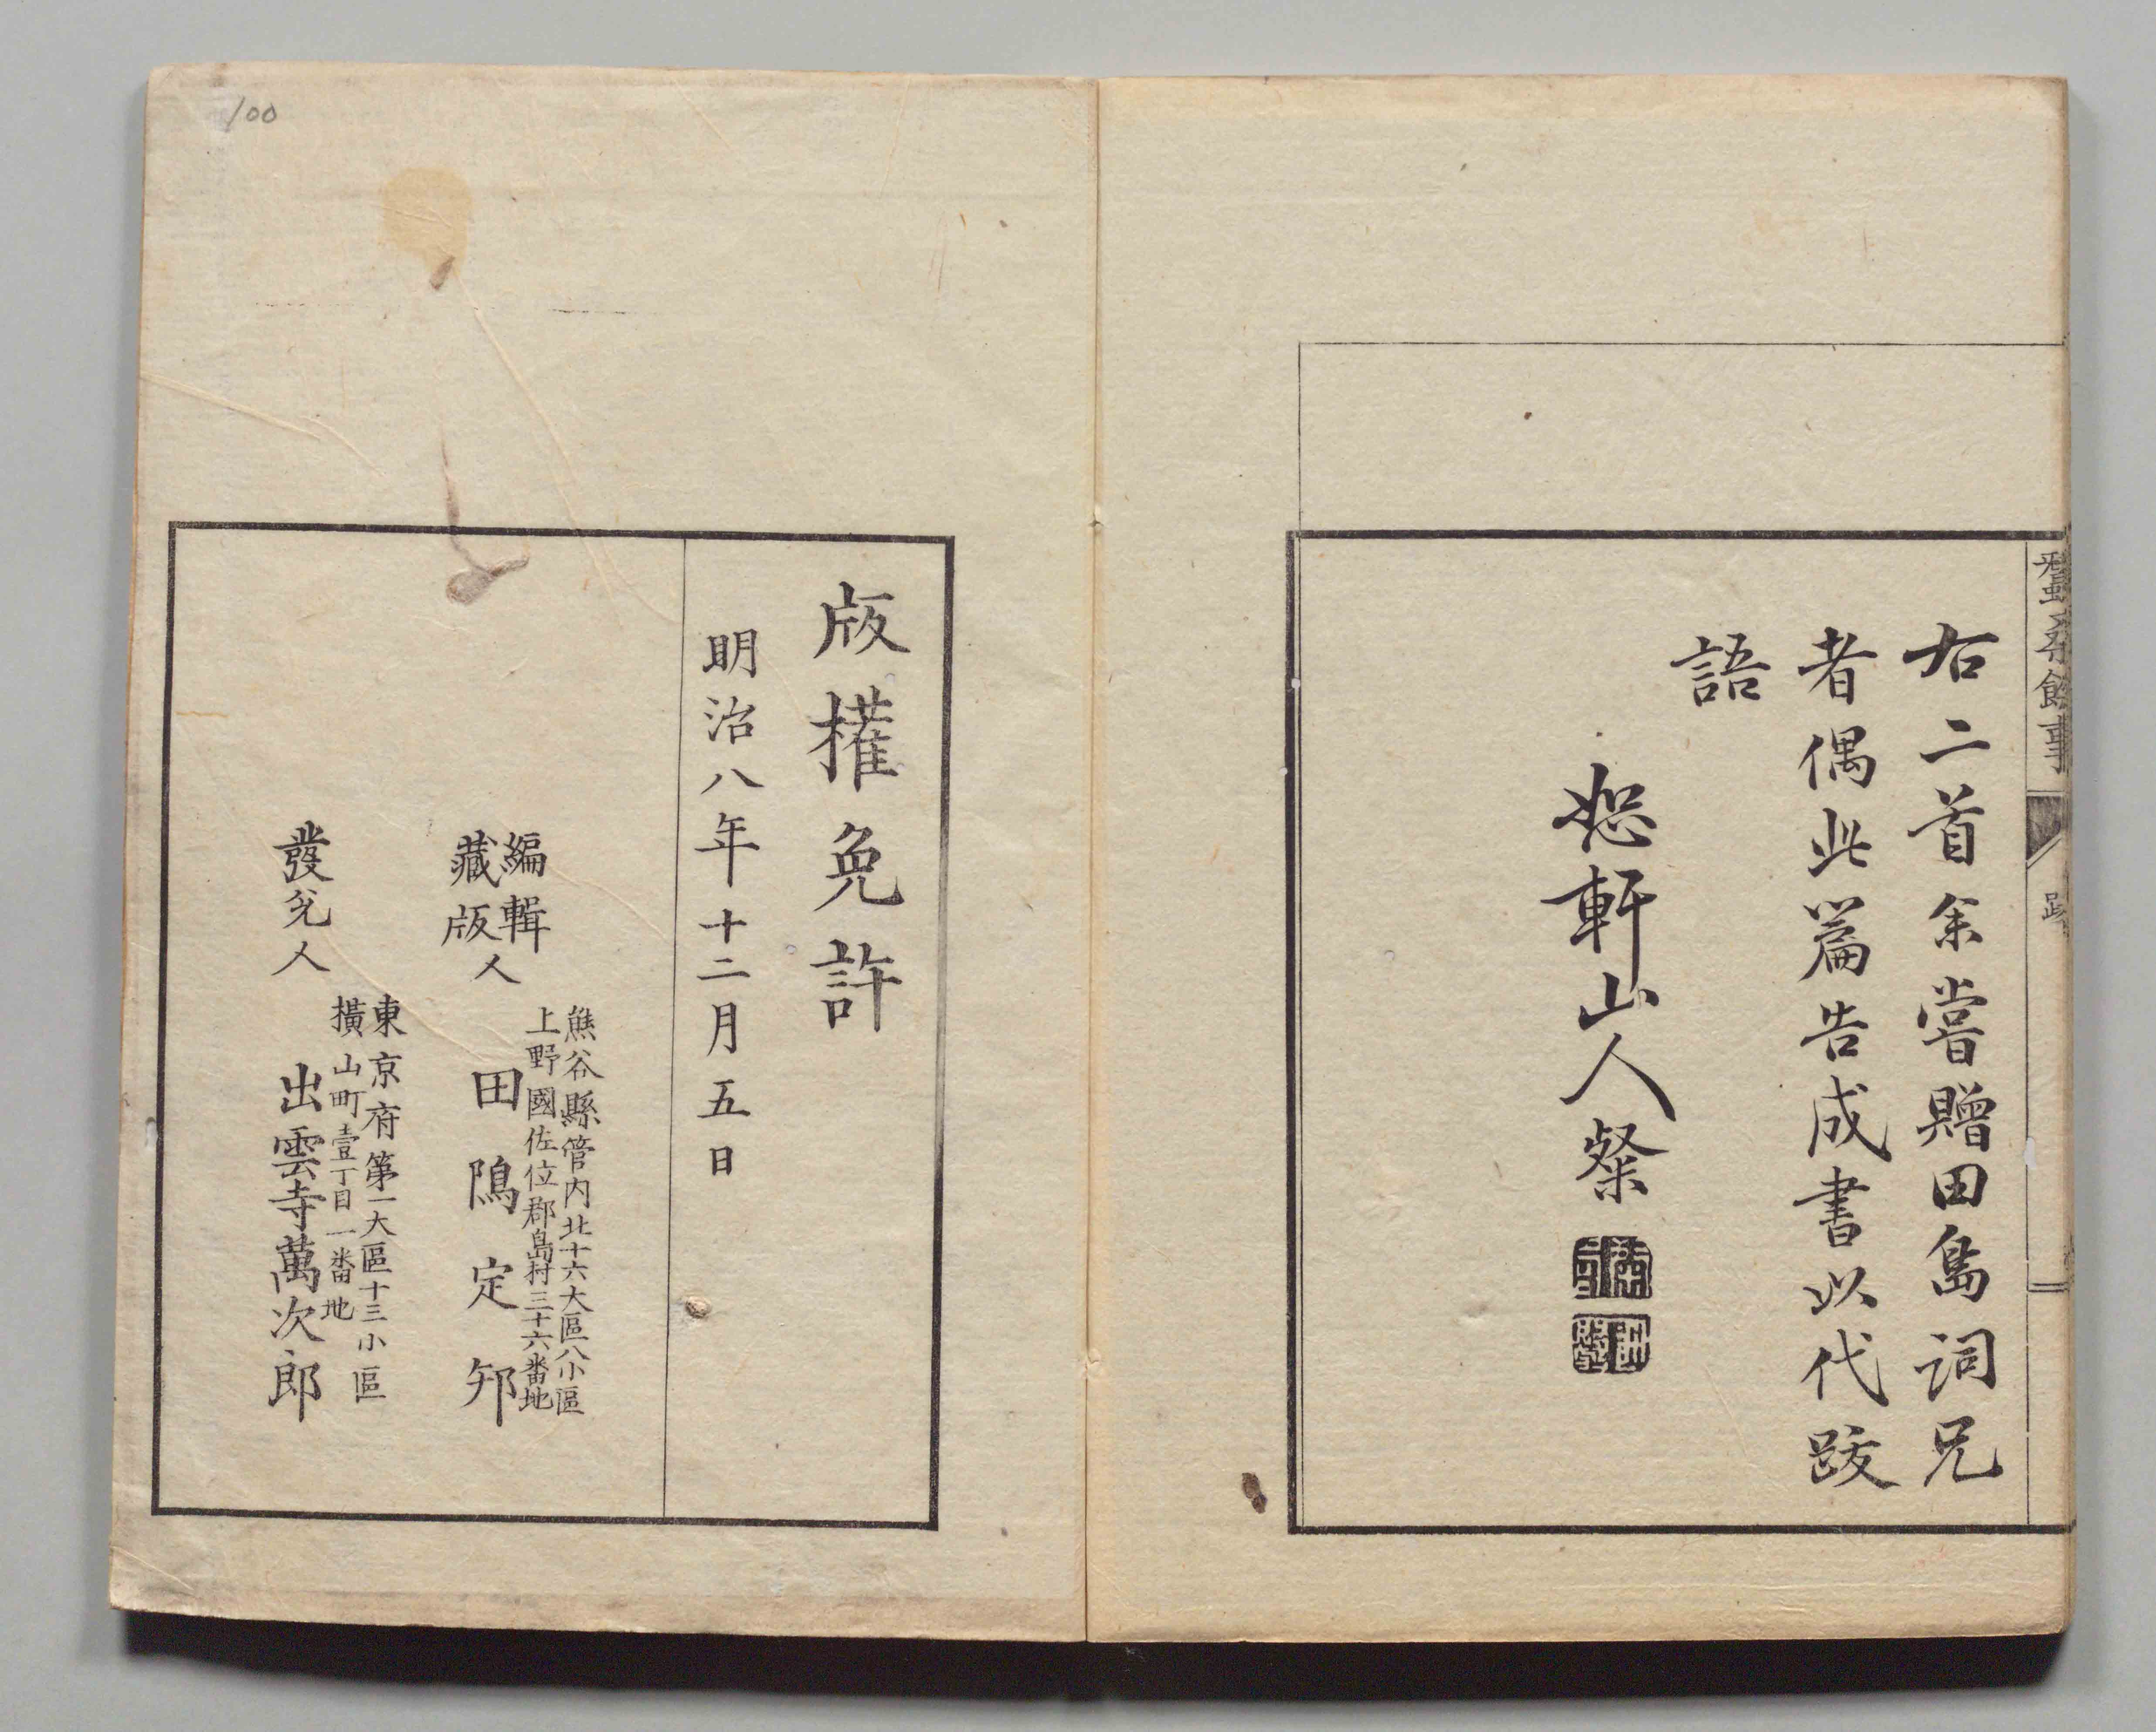 右二首余嘗贈田島詞兄
者偶此篇告成書以代跋
語
恕軒山人粲
跋
版權免許
明治八年十二月五日
編輯
藏版人
熊谷縣管内北十六大區八小區
上野國佐位郡島村三十六番地
田隝定邦
發兌人
東京府第一大區十三小區
横山町壹丁目一番地
出雲寺萬次郎
100